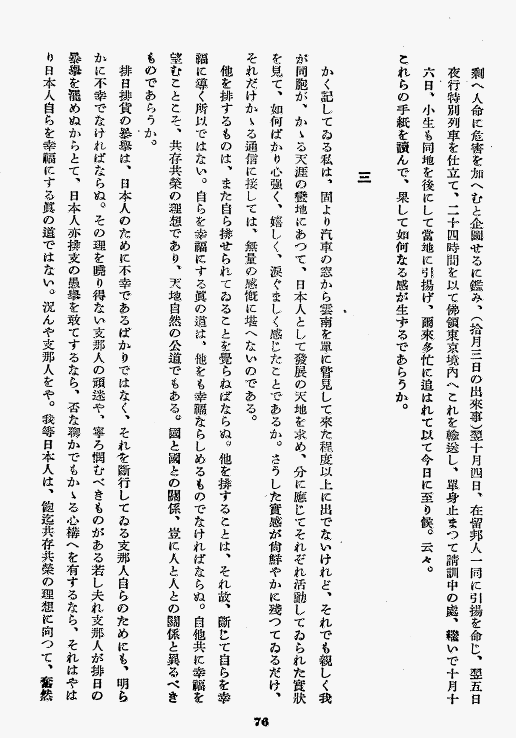 剩へ人命に危害を加へむと企圖せるに鑑み、（拾月三日の出來事）翌十月四日、在留邦人一同に引揚を命じ、翌五日
夜行特別列車を仕立て、二十四時間を以て佛領東京境內へこれを輸送し、單身止まつて請訓中の處、繼いで十月十
六日、小生も同地を後にして當地に引揚げ、爾來多忙に追はれて以て今日に至り候。云々。
これらの手紙を讀んで、果して如何なる感が生ずるであらうか。
三
かく記してゐる私は、固より汽車の窓から雲南を單に瞥見して來た程度以上に出でないけれど、それでも親しく我
が同胞が、かゝる天涯の蠻地にあつて、日本人として發展の天地を求め、分に應じてそれぞれ活動してゐられた實狀
を見て、如何ばかり心强く、嬉しく、淚ぐましく感じたことであるか。さうした實感が尙鮮やかに殘つてゐるだけ、
それだけかゝる通信に接しては、無量の感慨に堪へないのである。
他を排するものは、また自ら排せられてゐることを覺らねばならぬ。他を排することは、それ故、斷じて自らを幸
福に導く所以ではない。自らを幸福にする眞の道は、他をも幸福ならしめるものでなければならぬ。自他共に幸福を
望むことこそ、共存共榮の理想であり、天地自然の公道でもある。國と國との關係、豈に人と人との關係と異るべき
ものであらうか。
排日排貨の暴擧は、日本人のために不幸であるばかりではなく、それを斷行してゐる支那人自らのためにも、明ら
かに不幸でなければならぬ。その理を曉り得ない支那人の頑迷や、寧ろ憫むべきものがある若し夫れ支那人が排日の
暴擧を罷めぬからとて、日本人亦排支の愚擧を敢てするなら、否な聊かでもかゝる心構へを有するなら、それはやは
り日本人自らを幸福にする眞の道ではない。況んや支那人をや。我等日本人は、飽迄共存共榮の理想に向つて、奮然
76